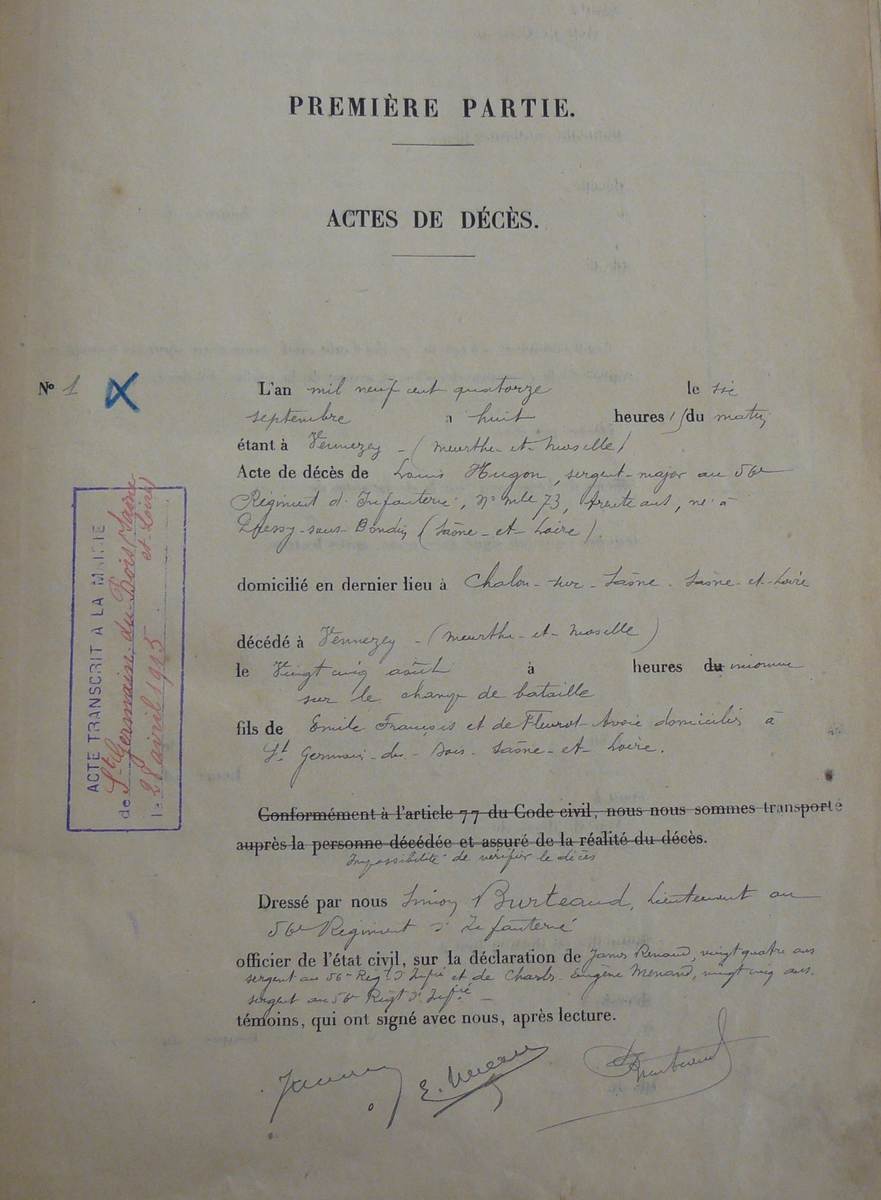 PREMIÈRE PARTIE.
ACTES DE DÉCÈS.
N° 1
L'an mil neuf cent quatorze le six
septembre à huit heures du matin
étant à Vennezey - (Meurthe-et-Moselle)
Acte de décès de Louis Hugon, sergent-major au 56e
Régiment d'Infanterie, N° mle 73, trente ans, né à
(Saône-et-Loire).
domicilié en dernier lieu à Chalon-sur-Saône. Saône-et-Loire
décédé à Vennezey - (Meurthe-et-Moselle)
le vingt cinq août à heures du
sur le champ de bataille
fils de Emile François et de Fleurot domiciliés à
St Germain-du-Bois. Saône-et-Loire.
Conformément à l'article 77 du Code civil, nous nous sommes transporté
auprès la personne décédée et assuré de la réalité du décès.
Impossibilité de vérifier le décès
Dressé par nous Simon Burteaud, Lieutenant au
56e Régiment d'Infanterie
officier de l'état civil, sur la déclaration de Renaud, vingt quatre ans
sergent au 56e Régt d'Infrie et de Charles Eugène Menand, vingt cinq ans,
sergent au 56e Régt d'Infrie
témoins, qui ont signé avec nous, après lecture.
ACTE TRANSCRIT A LA MAIRIE
de St Germain du Bois (Saône
et-Loire)
le 28 avril 1915